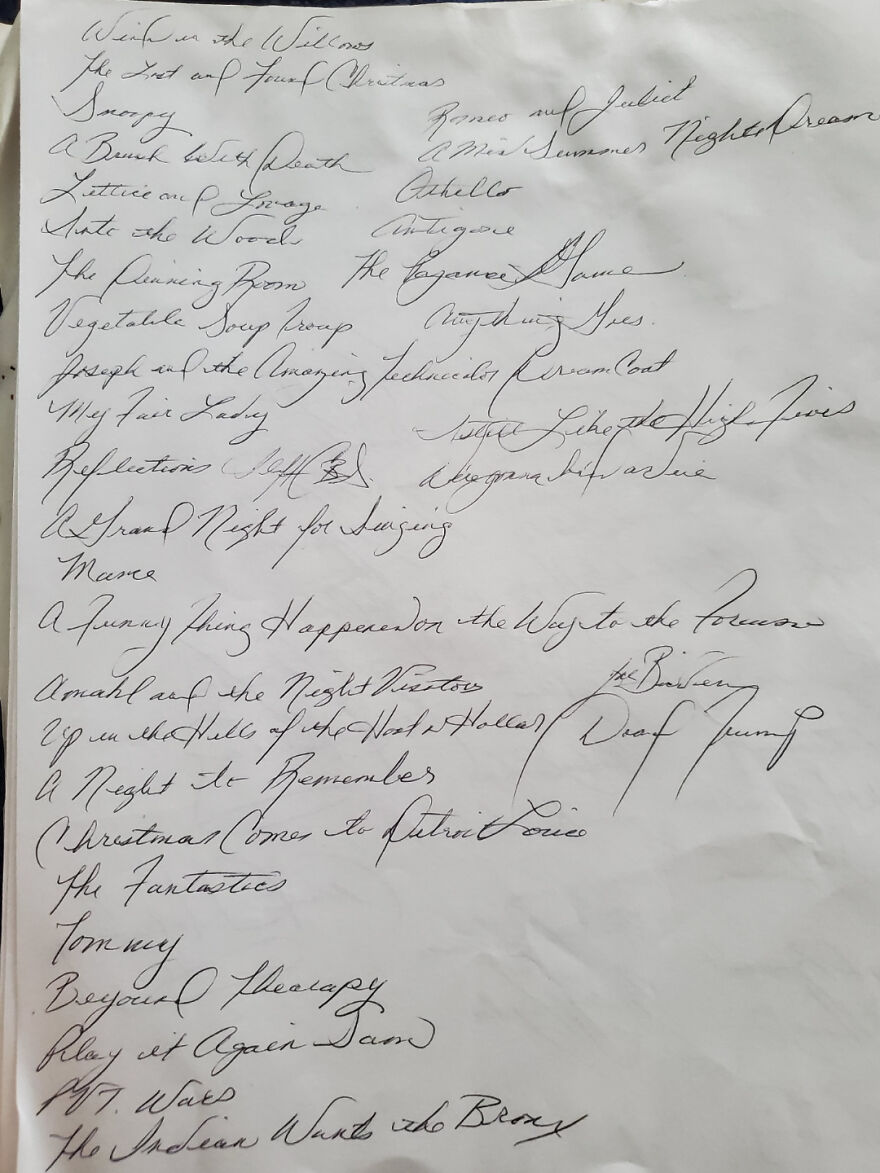 Wind in the Willows
The Lost and Found Christmas
Snoopy
Romeo and Juliet
A Brush With Death
A Mid Summer Nights Dream
Lettice and Lovage
Othello
Into the Woods
Antigone
The Dinning Room
The Game
Vegetable Soup Troup
Anything Goes.
Joseph and the Amazing Technicolor Dream Coat
My Fair Lady
Like the High
Reflections
A Grand Night for Singing
Mame
A Funny Thing Happened on the Way to the Forum
Joe Biden
Amahl and the Night Visitors
Up in the Hills of the Hoot n Holler
Trump
A Night to Remember
Christmas Comes to Detroit Louie
The Fantastics
Tommy
Beyound Therapy
Play it Again Sam
PVT. Wars
The Indian Wants the Bronx